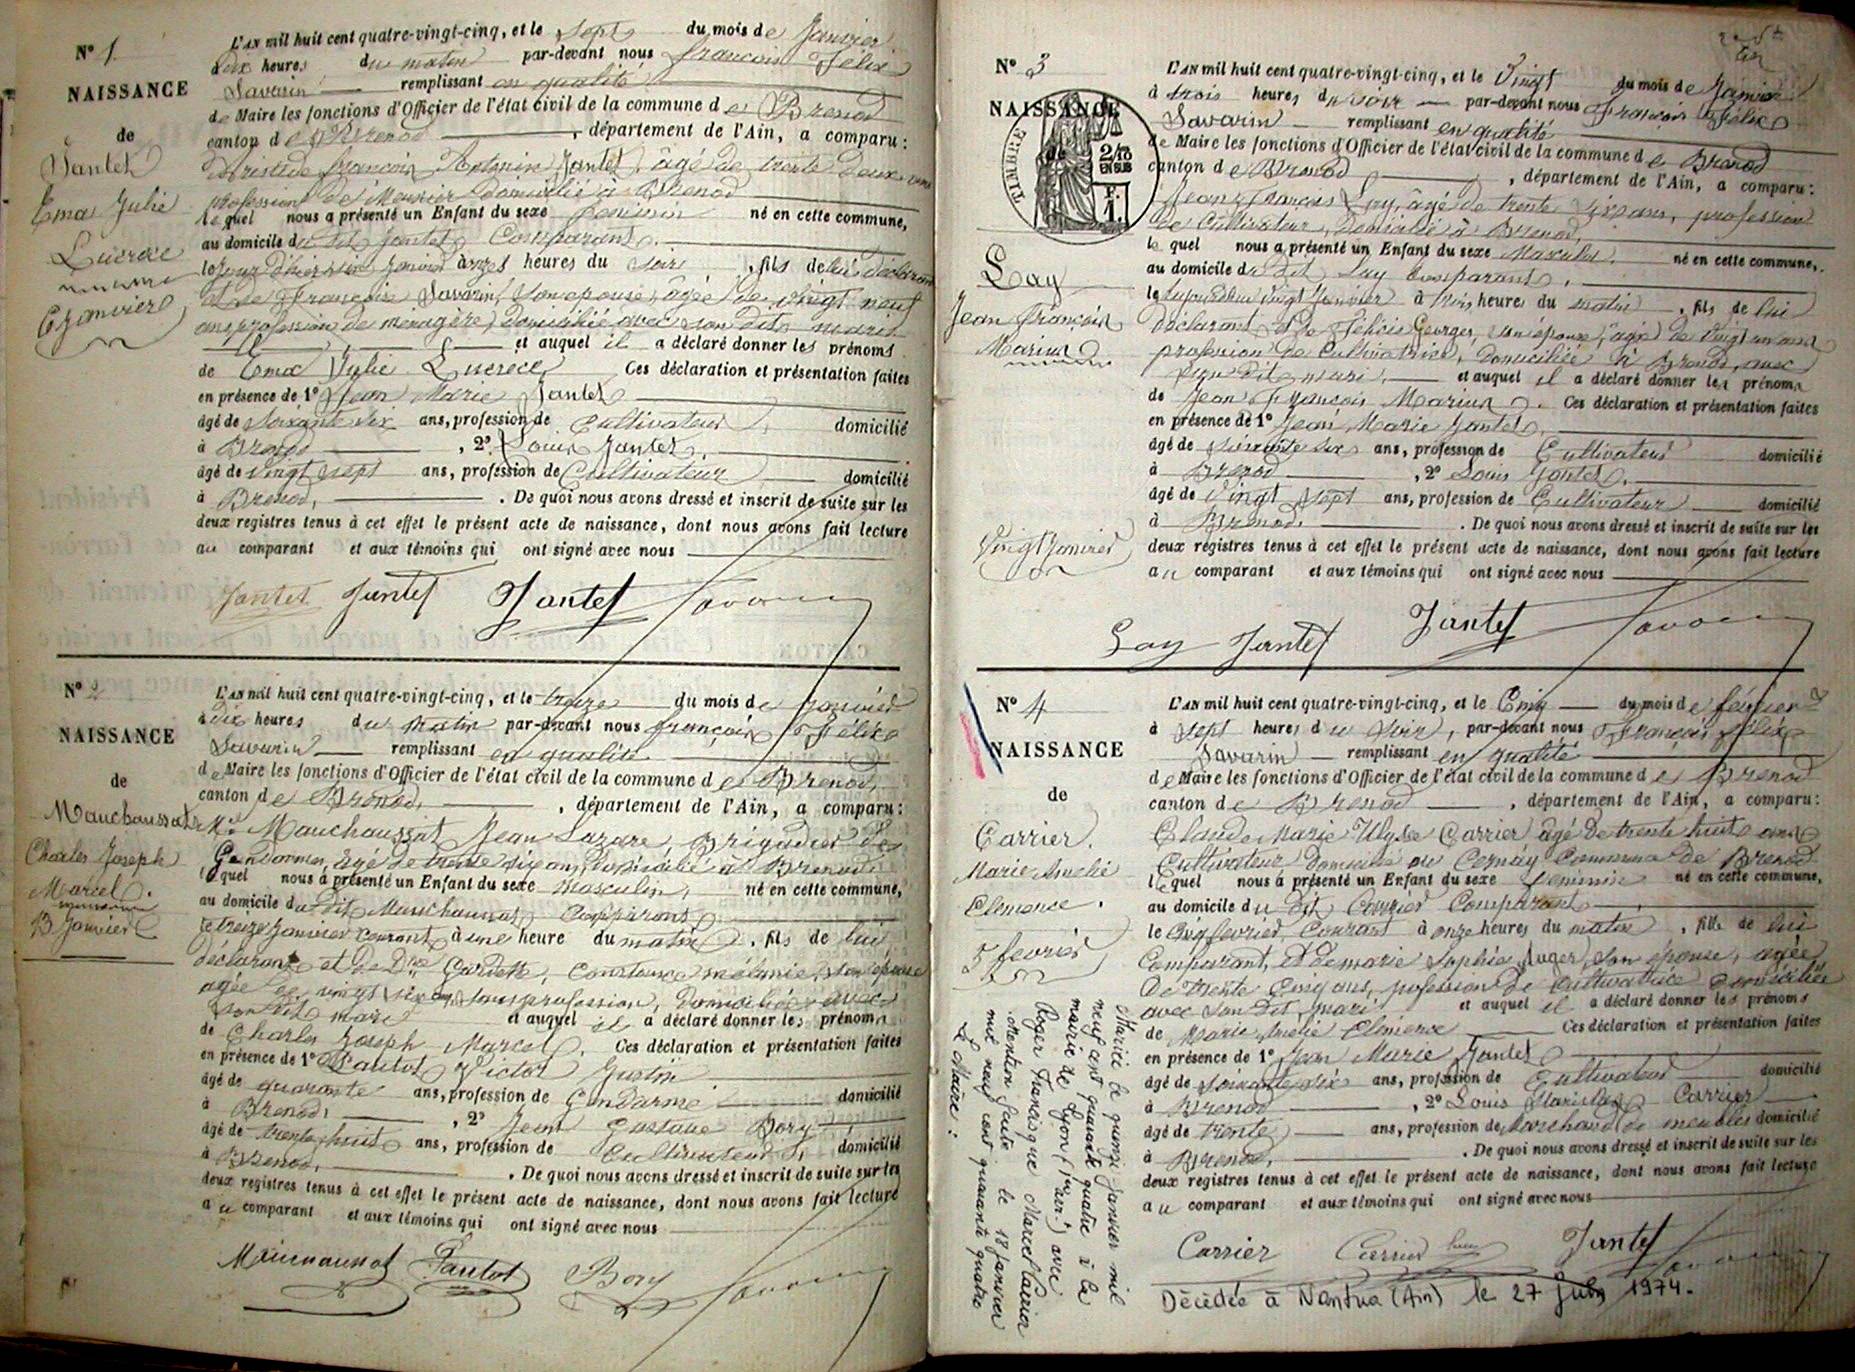 N° 1
NAISSANCE
de
Jantet
Ema Julie
Lucrèce
6 Janvier
L'AN mil huit cent quatre-vingt-cinq, et le sept du mois de Janvier
à dix heures du matin par-devant nous François Félix
Savarin remplissant en qualité
de Maire les fonctions d'Officier de l'état civil de la commune de Brenod
canton de Brenod, département de l'Ain, a comparu:
Aristide François Antonin Jantet, âgé de trente deux ans
profession de Menuisier domicilié à Brenod
lequel nous a présenté un Enfant du sexe féminin né en cette commune,
au domicile du dit Jantet Comparant.
le jour d'hier six Janvier à heures du soir, fils de lui déclarant
et de Françoise Savarin, son épouse, âgée de vingt neuf
ans profession de ménagère, domiciliée avec son dit mari
et auquel il a déclaré donner les prénoms
de Ema Julie Lucrèce Ces déclaration et présentation faites
en présence de 1° Jean Marie Jantet
âgé de soixante six ans, profession de Cultivateur, domicilié
à Brenod, 2° Louis Jantet,
âgé de vingt sept ans, profession de Cultivateur domicilié
à Brenod, . De quoi nous avons dressé et inscrit de suite sur les
deux registres tenus à cet effet le présent acte de naissance, dont nous avons fait lecture
au comparant et aux témoins qui ont signé avec nous
Jantet Jantet Jantet Savarin
N° 2
NAISSANCE
de
Mauchaussat
Charles Joseph
Marcel.
13 Janvier
L'AN mil huit cent quatre-vingt-cinq, et le treize du mois de Janvier
à dix heures du matin par-devant nous François Félix
Savarin remplissant en qualité
de Maire les fonctions d'Officier de l'état civil de la commune de Brenod,
canton de Brenod, , département de l'Ain, a comparu:
Mr Mauchaussat Jean Lazare, Brigadier de
Gendarmes, âgé de trente six ans, domicilié à Brenod,
lequel nous a présenté un Enfant du sexe masculin, né en cette commune,
au domicile du dit Mauchaussat Comparant
le treize Janvier courant à une heure du matin, fils de lui
déclarant et de Gardette, Constance mélanie, son épouse
agée de vingt six ans, sans profession, domiciliée avec
son dit mari et auquel il a déclaré donner les prénoms
de Charles Joseph Marcel. Ces déclaration et présentation faites
en présence de 1° Pautot Victor Justin
âgé de quarante ans, profession de Gendarme domicilié
à Brenod, , 2° Jean Gustave Bory
âgé de trente huit ans, profession de Cultivateur, domicilié
à Brenod, . De quoi nous avons dressé et inscrit de suite sur les
deux registres tenus à cet effet le présent acte de naissance, dont nous avons fait lecture
au comparant et aux témoins qui ont signé avec nous
Mauchaussat Pautot Bory Savarin
N° 3
NAISSANCE
de
TIMBRE
2/10 EN SUS
F. 1.
Lay
Jean François
Marius
Vingt Janvier
L'AN mil huit cent quatre-vingt-cinq, et le Vingt du mois de Janvier
à trois heures du soir par-devant nous François Félix
Savarin remplissant en qualité
de Maire les fonctions d'Officier de l'état civil de la commune de Brenod
canton de Brenod, département de l'Ain, a comparu:
Jean François Lay, âgé de trente six ans, profession
de Cultivateur, domicilié à Brenod,
lequel nous a présenté un Enfant du sexe Masculin, né en cette commune,
au domicile du dit Lay Comparant,
le aujourd'hui vingt Janvier à trois heures du matin, fils de lui
déclarant et de Félicie Georges, son épouse, âgée de vingt un ans
profession de Cultivatrice, domiciliée à Brenod, avec
son dit mari, et auquel il a déclaré donner les prénoms
de Jean François Marius. Ces déclaration et présentation faites
en présence de 1° Jean Marie Jantet,
âgé de soixante six ans, profession de Cultivateur domicilié
à Brenod, 2° Louis Jantet,
âgé de vingt sept ans, profession de Cultivateur domicilié
à Brenod, . De quoi nous avons dressé et inscrit de suite sur les
deux registres tenus à cet effet le présent acte de naissance, dont nous avons fait lecture
au comparant et aux témoins qui ont signé avec nous
Lay Jantet Jantet Savarin
N° 4
NAISSANCE
de
Carrier.
Marie Amélie
Clémence.
5 février
L'AN mil huit cent quatre-vingt-cinq, et le Cinq du mois de février
à sept heures du soir, par-devant nous François Félix
Savarin remplissant en qualité
de Maire les fonctions d'Officier de l'état civil de la commune de Brenod
canton de Brenod, département de l'Ain, a comparu:
Claude Marie Ulysse Carrier âgé de trente huit ans
Cultivateur domicilié au Cernay Commune de Brenod
lequel nous a présenté un Enfant du sexe féminin né en cette commune,
au domicile du dit Carrier Comparant
le Cinq février Courant à onze heures du matin, fille de lui
Comparant, et de marie Sophie Auger, son épouse, agée
de trente Cinq ans, profession de Cultivatrice domiciliée
avec son dit mari et auquel il a déclaré donner les prénoms
de Marie Amélie Clémence Ces déclaration et présentation faites
en présence de 1° Jean Marie Jantet
âgé de soixante six ans, profession de Cultivateur domicilié
à Brenod, 2° Louis Carrier
âgé de trente ans, profession de Marchand de meubles domicilié
à Brenod, . De quoi nous avons dressé et inscrit de suite sur les
deux registres tenus à cet effet le présent acte de naissance, dont nous avons fait lecture
au comparant et aux témoins qui ont signé avec nous
Carrier Carrier Jantet Savarin
Décédée à Nantua (Ain) le 27 1974.
Mariée le quinze janvier mil
neuf cent quarante quatre à la
mairie de Lyon ( arr.) avec
Roger Francisque Marcel
Mention faite le 18 janvier
mil neuf cent quarante quatre
Le Maire: